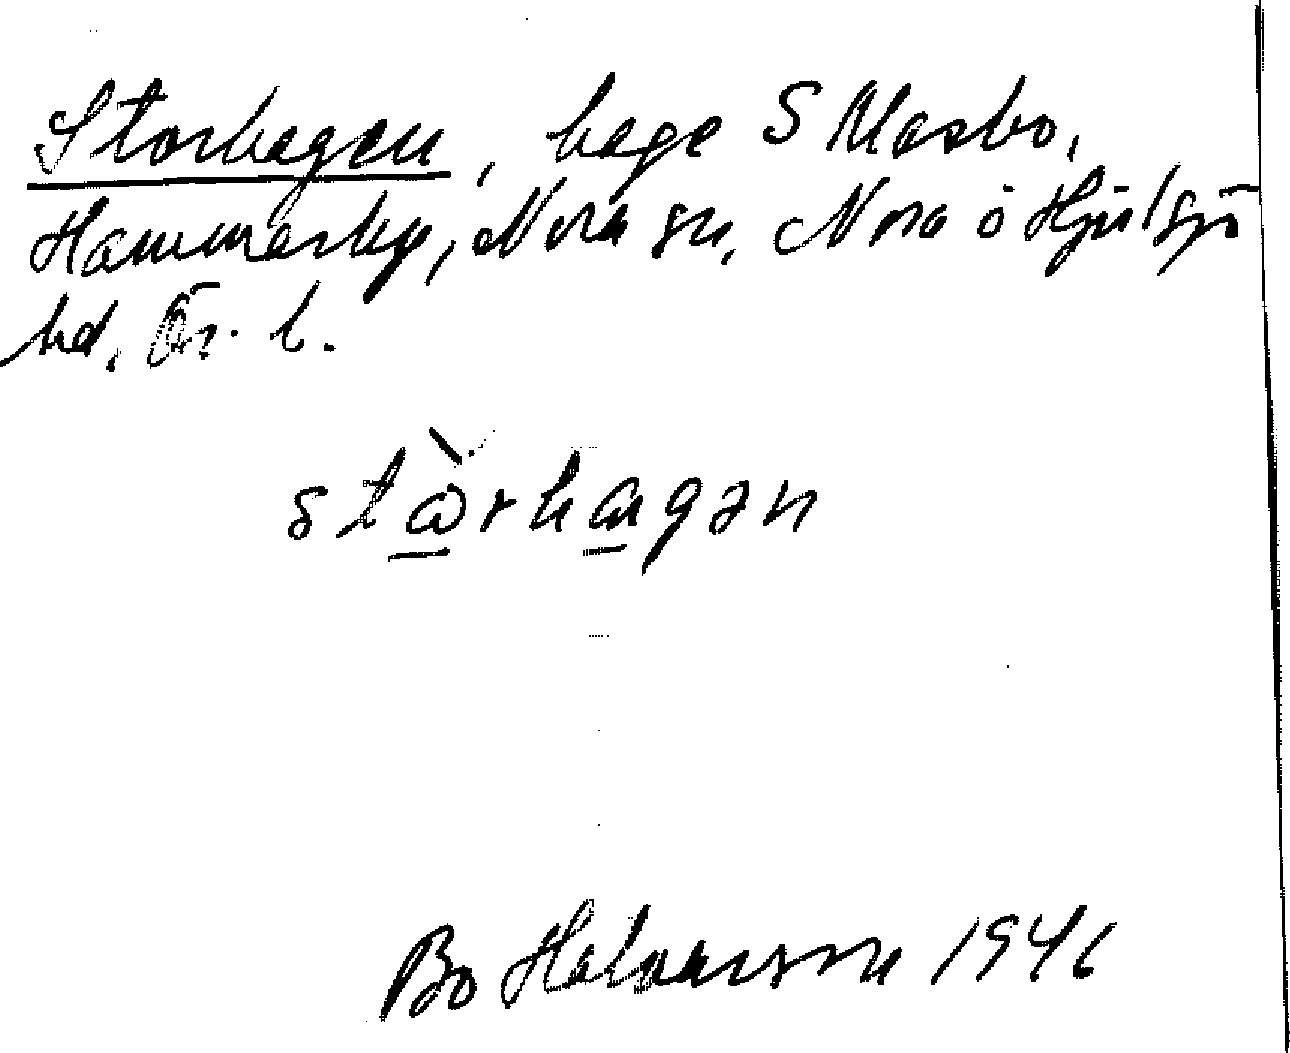 Storhagen, hage S Masbo,
Hammarby, Nora sn, Nora o Hjulsjö
hd, Ör. l.
stὼrhagən
Bo Halvarsson 1946